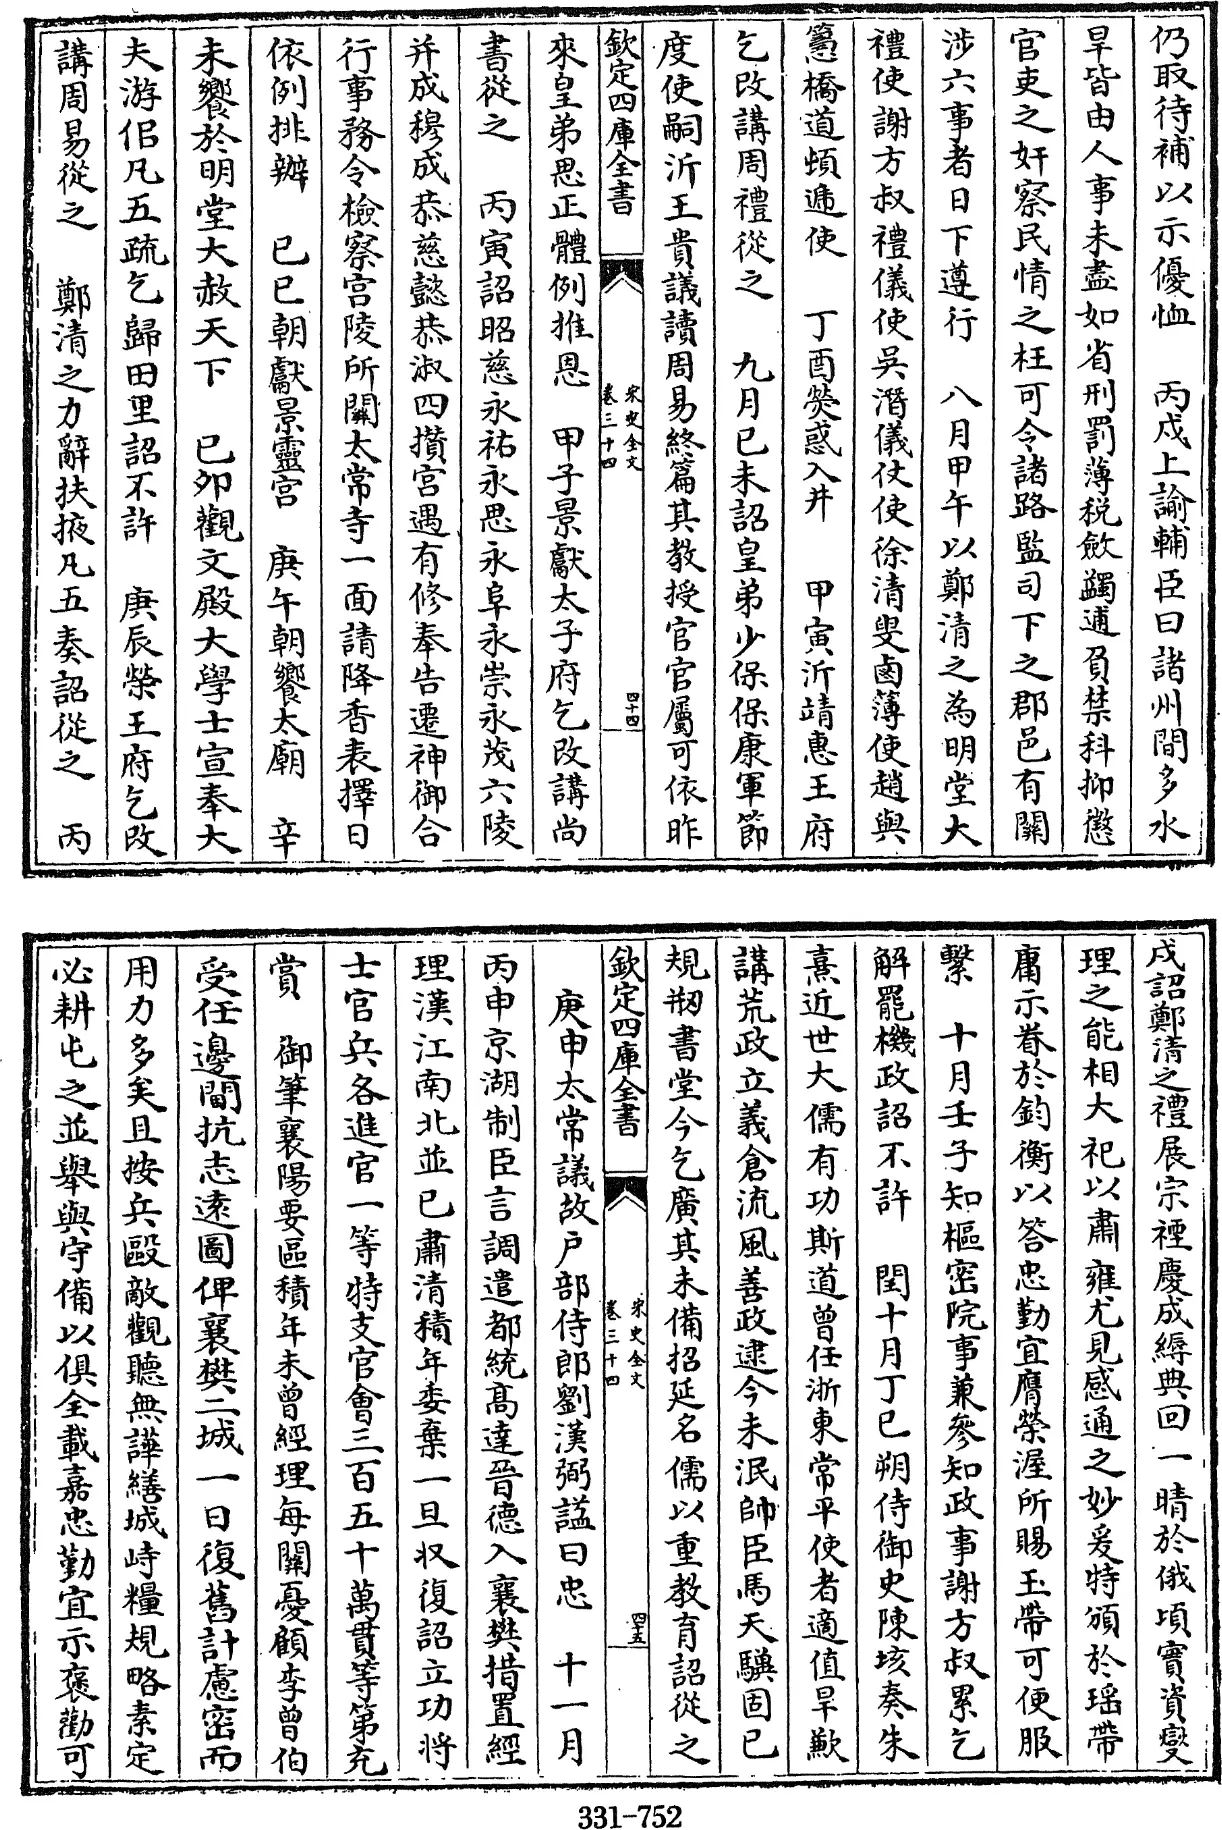 仍取待補以示優恤　丙戌上諭輔臣曰諸州間多水
旱皆由人事未盡如省刑罰薄稅斂蠲逋負禁科抑懲
官吏之奸察民情之枉可令諸路監司下之郡邑有關
涉六事者日下遵行　八月甲午以鄭清之為明堂大
禮使謝方叔禮儀使吳潛儀仗使徐清叟鹵簿使趙與
𥲅橋道頓遞使　丁酉熒惑入井　甲寅沂靖惠王府
乞改講周禮從之　九月己未詔皇弟少保保康軍節
度使嗣沂王貴謙讀周易終篇其教授官官屬可依昨
欽定四庫全書
宋史全文
卷三十四
四十四
來皇弟思正體例推恩　甲子景獻太子府乞改講尚
書從之　丙寅詔昭慈永祐永思永阜永崇永茂六陵
并成穆成恭慈懿恭淑四攢宮遇有修奉告遷神御合
行事務令檢察宮陵所關太常寺一面請降香表擇日
依例排辦　己巳朝獻景靈宮　庚午朝饗太廟　辛
未饗於明堂大赦天下　己卯觀文殿大學士宣奉大
夫游侣凡五疏乞歸田里詔不許　庚辰榮王府乞改
講周易從之　鄭清之力辭扶掖凡五奏詔從之　丙
戌詔鄭清之禮展宗禋慶成縟典回一晴於俄頃實資燮
理之能相大祀以肅雍尤見感通之妙爰特頒於瑶帶
庸示眷於鈞衡以答忠勤宜膺榮渥所賜玉帶可便服
繫　十月壬子知樞密院事兼參知政事謝方叔累乞
解罷機政詔不許　閏十月丁巳朔侍御史陳垓奏朱
熹近世大儒有功斯道曾任浙東常平使者適值旱歉
講荒政立義倉流風善政逮今未泯帥臣馬天驥固已
規刱書堂今乞廣其未備招延名儒以重教育詔從之
欽定四庫全書
宋史全文
卷三十四
四十五
庚申太常議故户部侍郎劉漢弼謚曰忠　十一月
丙申京湖制臣言調遣都統高達晉德入襄樊措置經
理漢江南北並已肅清積年委棄一旦収復詔立功將
士官兵各進官一等特支官會三百五十萬貫等第充
賞　御筆襄陽要區積年未曾經理每關憂顧李曾伯
受任邊閫抗志遠圖俾襄樊二城一日復舊計慮密而
用力多矣且按兵毆敵觀聽無譁繕城峙糧規略素定
必耕屯之並舉與守備以俱全載嘉忠勤宜示褒勸可
331-752